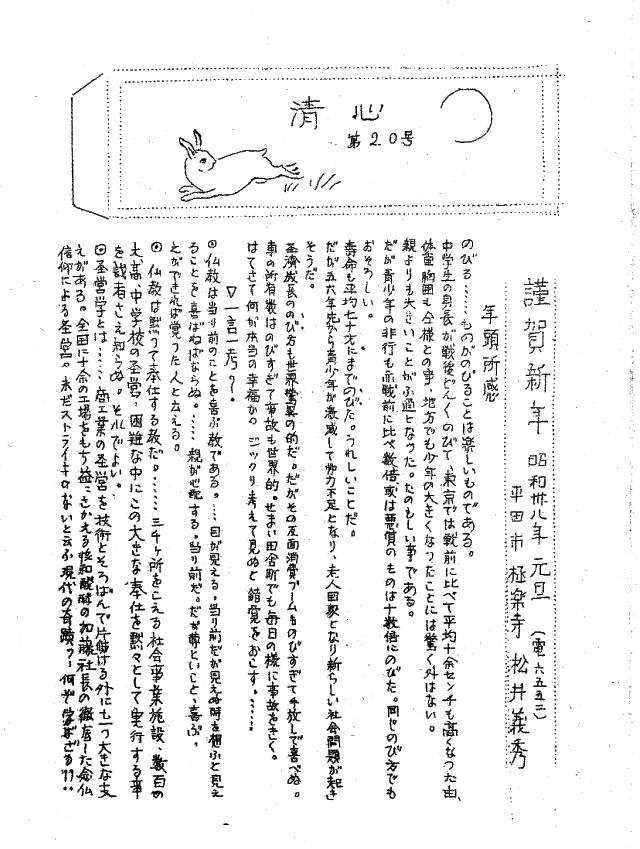 清心
第20号
謹賀新年 昭和卅八年 元旦
平田市 極楽寺 松井義秀
(電六五五二)
年頭所感
のびる……ものがのびることは楽しいものである。
中学生の身長が戦後どんくのびて、東京では戦前に比べて平均十余センチも高くなつた由、
体重胸囲も全様との事、地方でも少年の大きくなつたことには驚く外はない。
親よりも大きいことがふ通となつた。たのもしい事である。
だが青少年の非行も亦戦前に比べ数倍或は悪質のものは十数倍にのびた。同じのび方でも
おそろしい。
寿命も平均七十才にまでのびた。うれしいことだ。
だが五六年先から青少年が激減して労力不足となり、老人国家となり新らしい社会問題が起き
そうだ。
経済成長ののび方も世界驚異の的だ。だがその反面消費ブームものびすぎて手放しで喜べぬ。
車の所有数はのびすぎて事故も世界的。せまい田舎町でも毎日の様に事故をきく。
はてさて何が本当の幸福かつ ジツクリ考えて見ぬと錯覚をおこす。……
▽一言一考?!
◎仏教は当り前のことを喜ぶ教である。…目が見える。当り前だが見えぬ時を想ふと見え
ることを喜ばねばならぬ。…… 親が心配する。当り前だ。だが尊といこと、喜ぶ、
とができれば覚つた人と云える。
◎ 仏教は黙つて奉仕する教だ。…… 三千ヶ所をこえる社会事業施設、数百の
大、高、中学校の経営、困難な中にこの大きな奉仕を黙々として実行する事
を識者さえ知らぬ。それでよい。
◎経営学とは……商工業の経営を技術とそろばんで片付ける外にも一つ大きな支
えがある。全国に十余の工場をもち益々さかえる協和醗酵の加藤社長の徹底した念仏
信仰による経営。未だストライキのないと云ふ現代の奇蹟?!何ぞ学ばざる??..